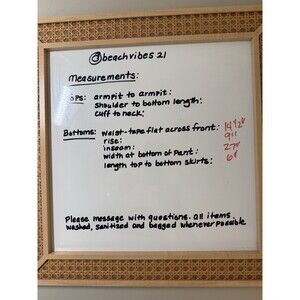 @beachvibes21
Measurements:
Tops: armpit to armpit:
shoulder to bottom length:
cuff to neck:
Bottoms: waist-tape flat across front:
rise: 9"
inseam: 27"
width at bottom of pant: 6"
length top to bottom skirts:
Please message with questions. all items
washed, sanitized and bagged whenever possible